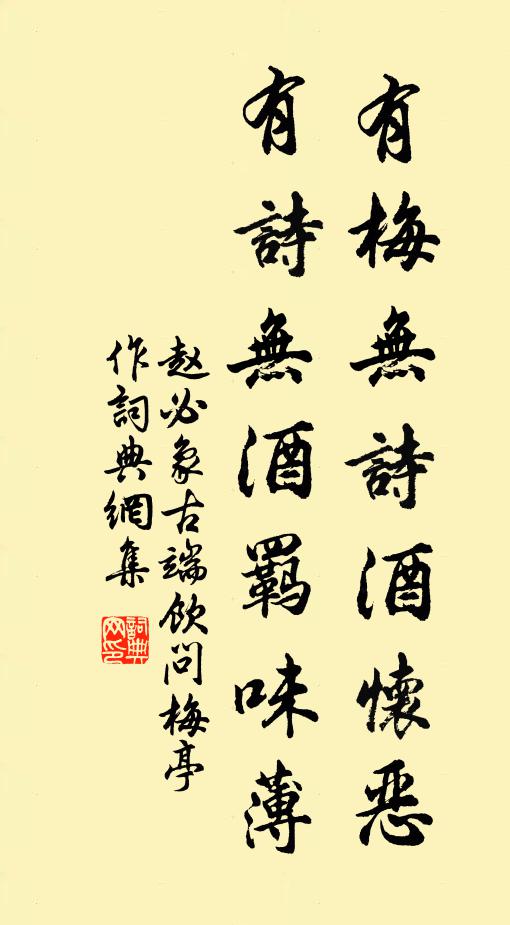 有梅無詩酒懷恶
有詩無酒羁味薄
赵必象古端飲问梅亭
作詞典網集
詞典网印